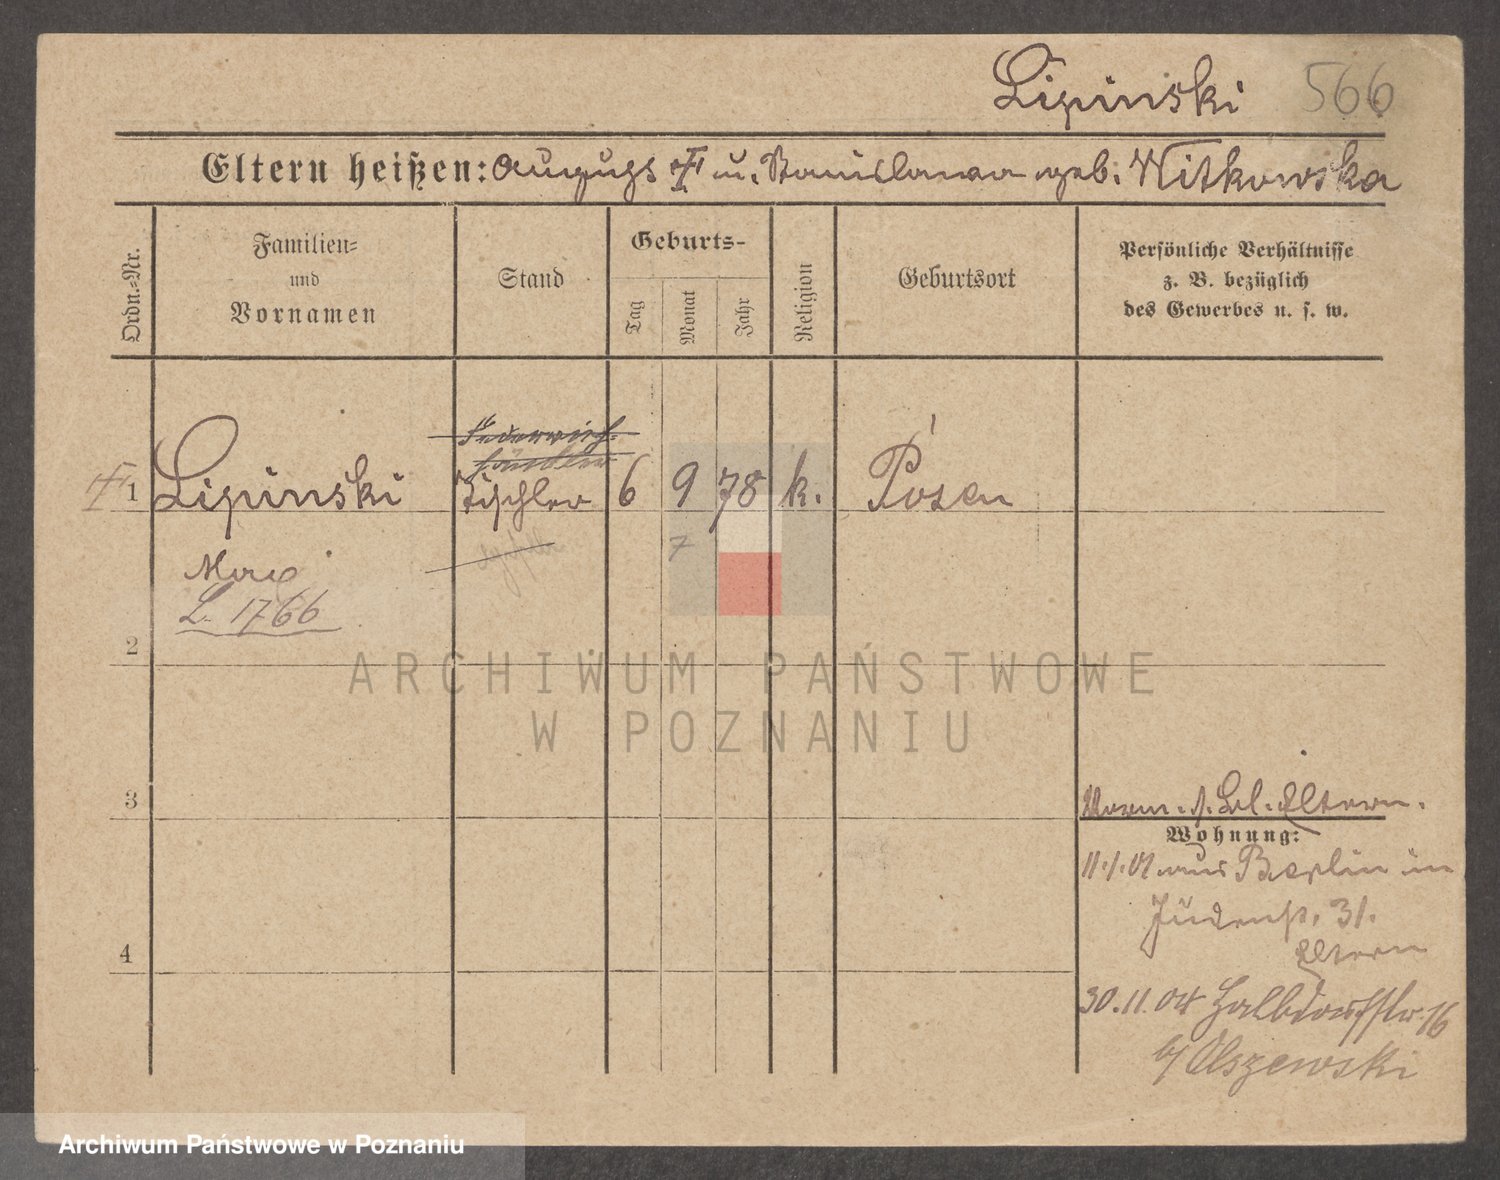 Lipinski 566
Eltern heißen: August † u. Stanislawa geb. Witkowska
Ordn.-Nr.
Familien-
und
Vornamen
Stand
Geburts-
Tag
Monat
Jahr
Religion
Geburtsort
Persönliche Verhältnisse
z. B. bezüglich
des Gewerbes u. s. w.
† 1 Lipinski Tischler 6 9 78 k. Posen
7
Max
L. 1766
2
ARCHIWUM PAŃSTWOWE
W POZNANIU
3
Eltern.
Wohnung:
11.1.01 aus Berlin in
Judenstr. 31.
Eltern
4
30.11.04 Halbdorfstr. 16
b/ Olszewski
Archiwum Państwowe w Poznaniu